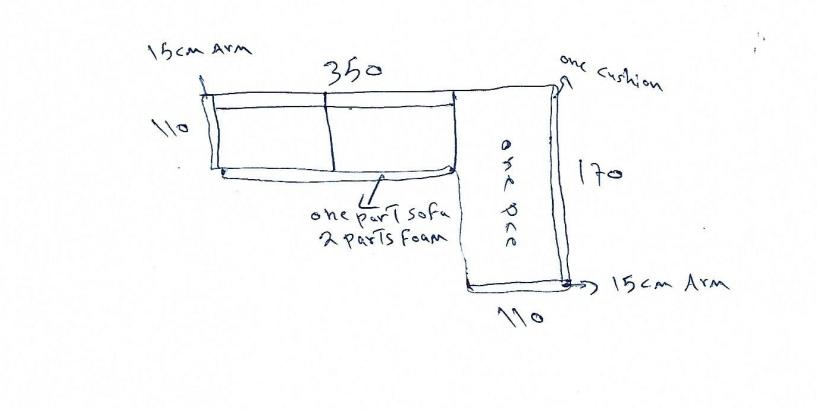 15cm Arm
350
one cushion
110
170
one part sofa
2 parts foam
15cm Arm
110